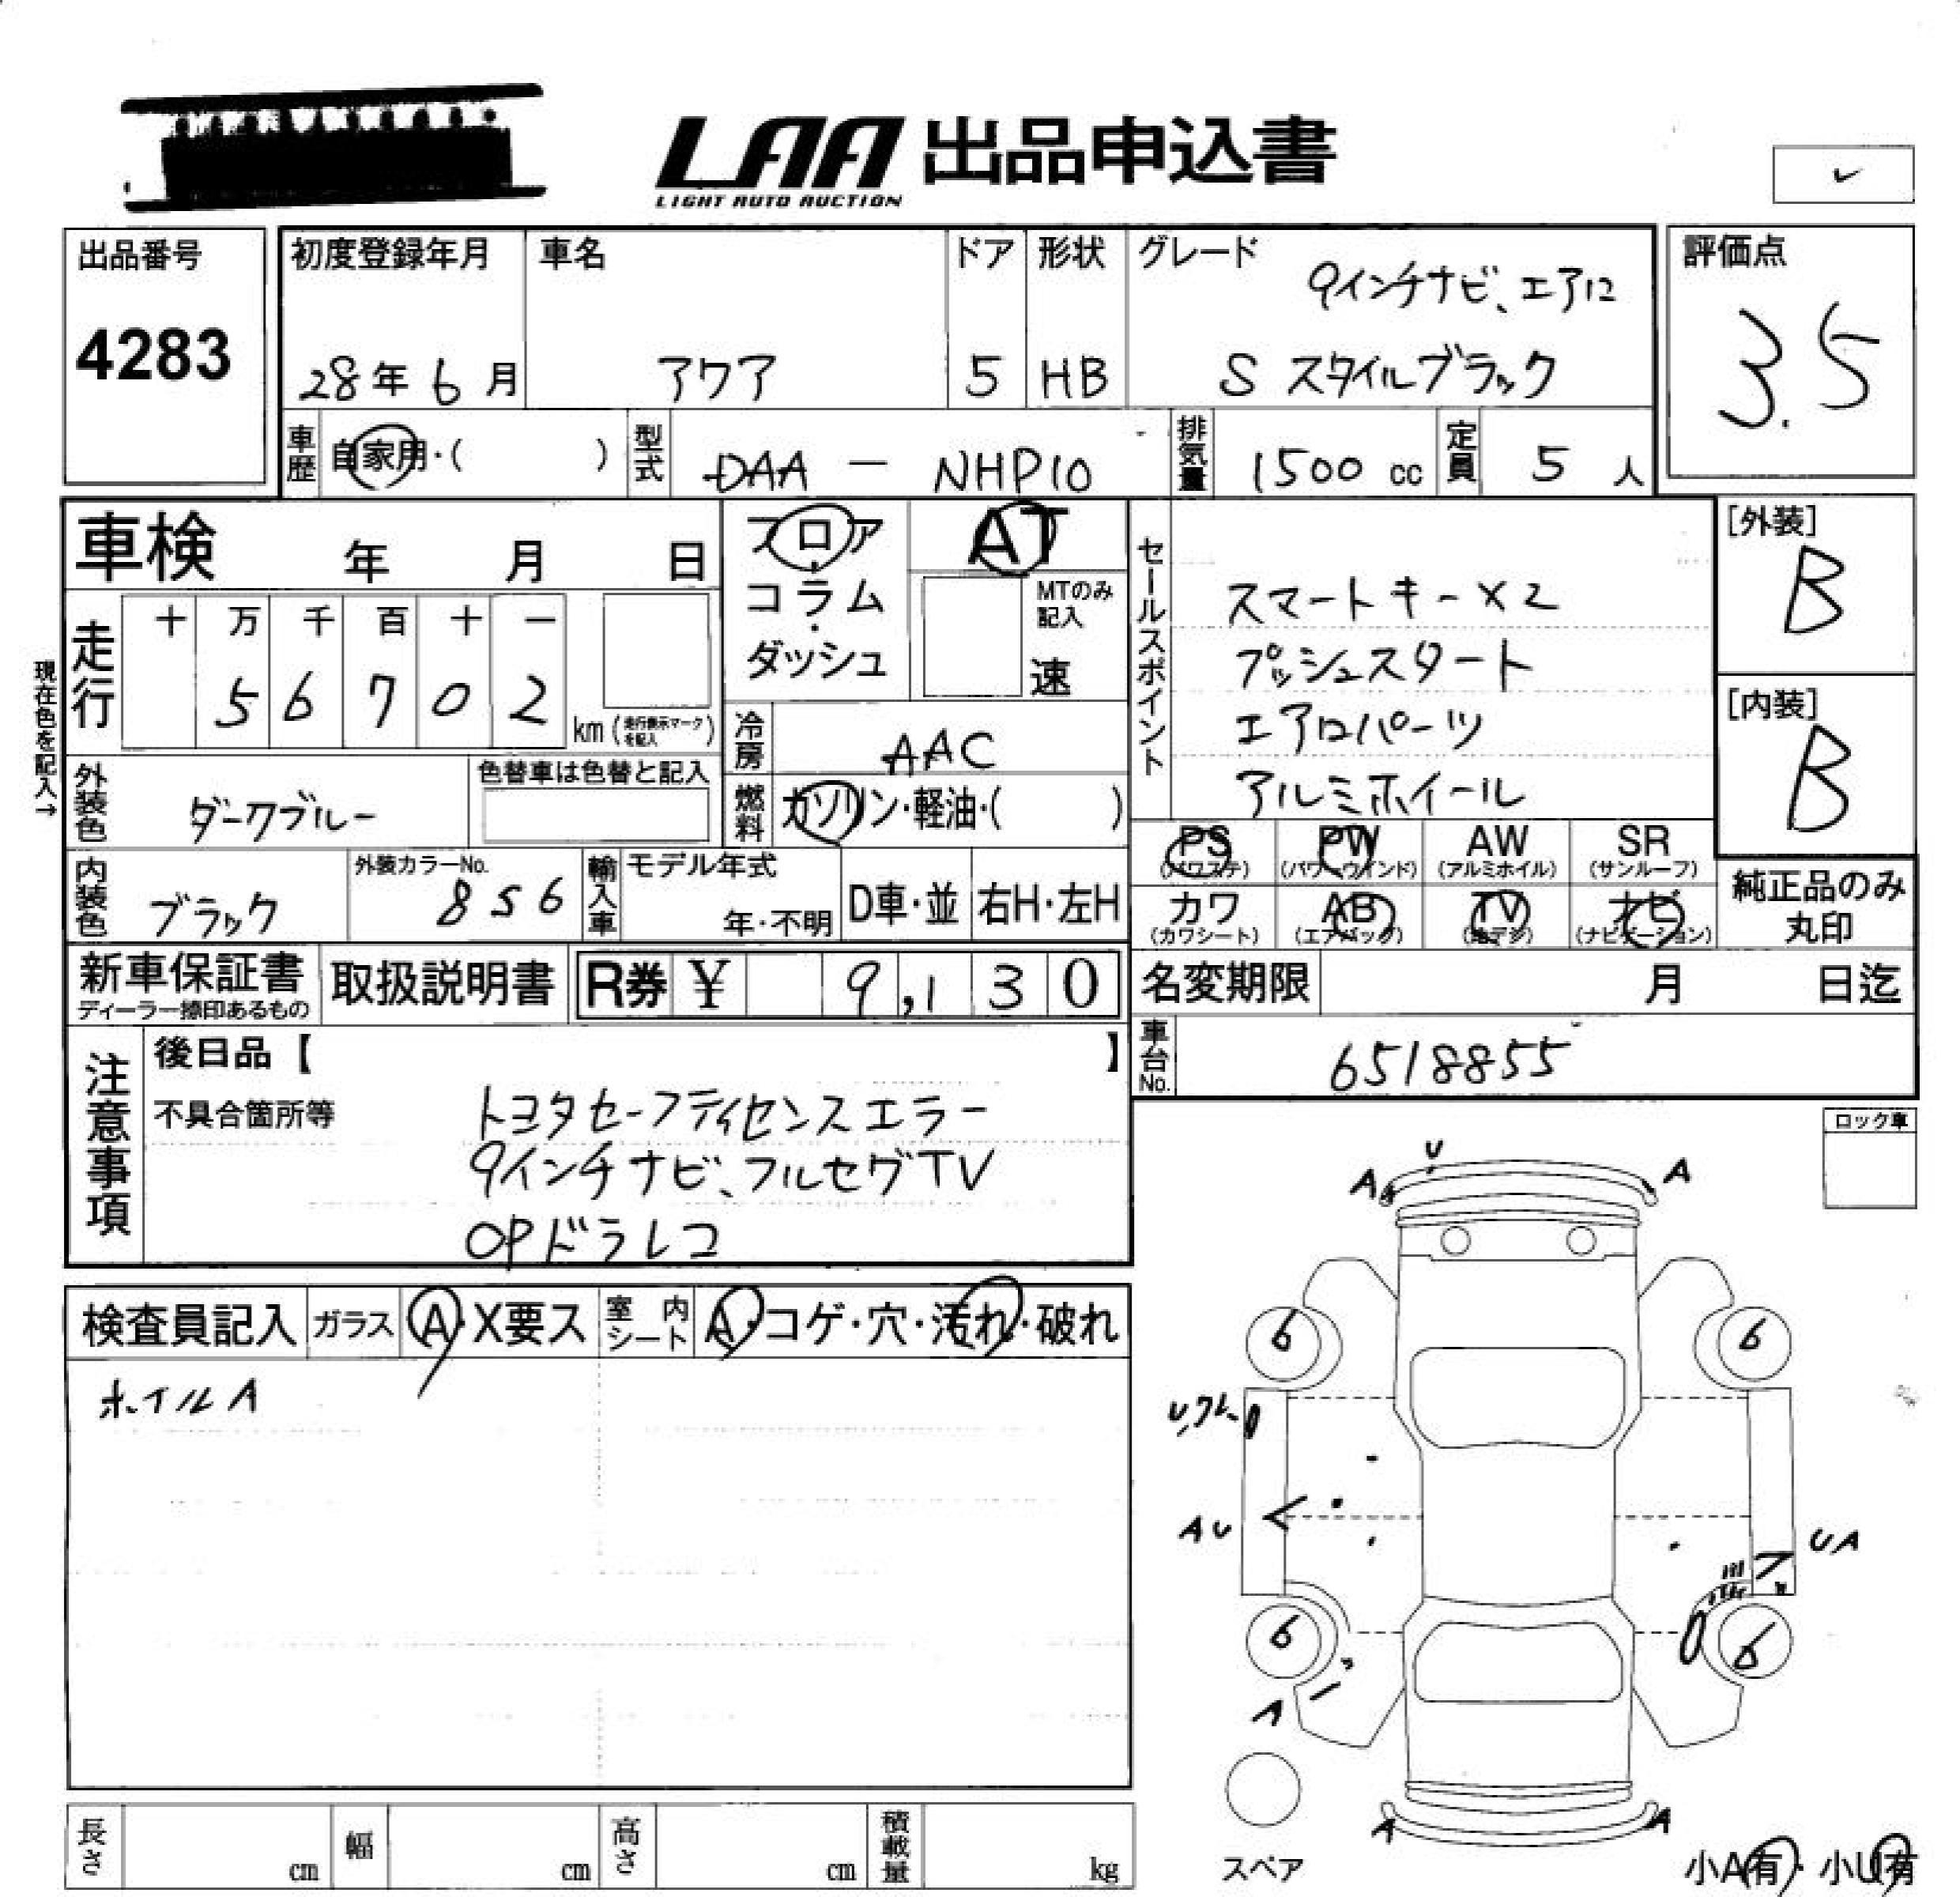 LAA 出品申込書
LIGHT AUTO AUCTION
出品番号
4283
初度登録年月
28年6月
車名
アクア
ドア
5
形状
HB
グレード
9インチナビ、エアロ
S スタイルブラック
評価点
3.5
車歴
自家用・( )
型式
DAA - NHP10
排気量
1500 cc
定員
5 人
車検 年 月 日
フロア・コラム・ダッシュ
AT
MTのみ記入
速
セールスポイント
スマートキー×2
プッシュスタート
エアロパーツ
アルミホイール
[外装]
B
[内装]
B
現在色を記入→
走行
十 万 千 百 十 一
5 6 7 0 2
km (走行表示マークを記入)
冷房
AAC
外装色
ダークブルー
色替車は色替と記入
燃料
ガソリン・軽油・( )
PS (パワステ)
PW (パワーウインド)
AW (アルミホイル)
SR (サンルーフ)
カワ (カワシート)
AB (エアバッグ)
TV (地デジ)
ナビ (ナビゲーション)
純正品のみ丸印
内装色
ブラック
外装カラーNo.
856
輸入車
モデル年式
年・不明
D車・並
右H・左H
新車保証書
ディーラー捺印あるもの
取扱説明書
R券 ¥ 9,130
名変期限 月 日迄
車台No.
6518855
注意事項
後日品【 】
不具合箇所等
トヨタセーフティセンスエラー
9インチナビ、フルセグTV
OPドラレコ
ロック車
検査員記入
ガラス
A・X要ス
室内シート
A・コゲ・穴・汚れ・破れ
ホイルA
U
A A
6 6
U,クレ
AU
UA
6 6
A
A A
スペア
小A有・小U有
長さ cm
幅 cm
高さ cm
積載量 kg